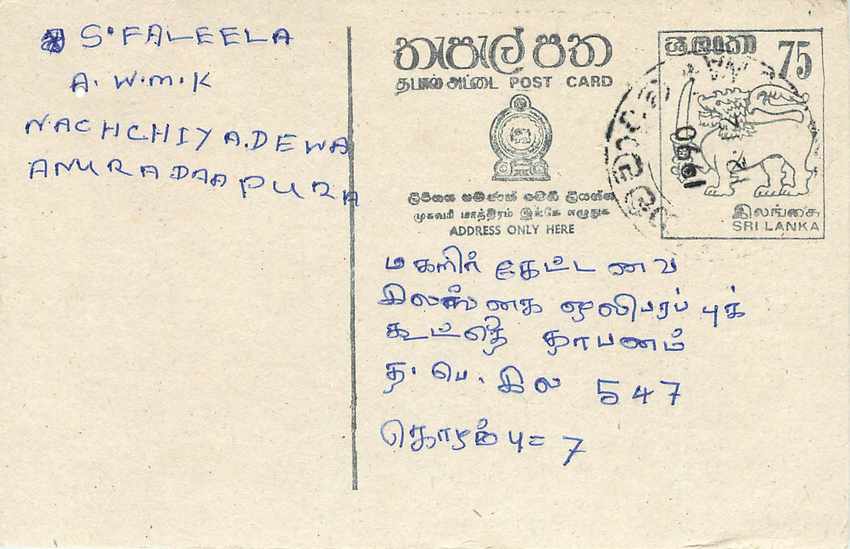 S. FALEELA
A. W.M.K
NACHCHIYA.DEWA
ANURADAAPURA
තැපැල් පත
தபால் அட்டை POST CARD
ලිපිනය පමණක් මෙහි ලියන්න
முகவரி மாத்திரம் இங்கே எழுதுக
ADDRESS ONLY HERE
ශ්‍රී ලංකා 75
இலங்கை
SRI LANKA
1990
மகளிர் கேட்டவை
இலங்கை ஒலிபரப்புக்
கூட்டுத் தாபணம்
த. பெ. இல 547
கொழும்பு = 7